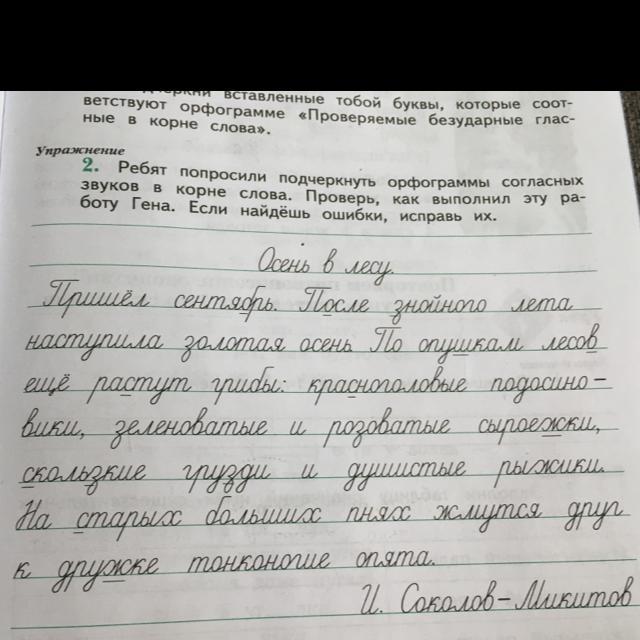 вставленные тобой буквы, которые соот-
ветствуют орфограмме «Проверяемые безударные глас-
ные в корне слова».
Упражнение
2. Ребят попросили подчеркнуть орфограммы согласных
звуков в корне слова. Проверь, как выполнил эту ра-
боту Гена. Если найдёшь ошибки, исправь их.
Осень в лесу.
Пришёл сентябрь. После знойного лета
наступила золотая осень. По опушкам лесов
ещё растут грибы: красноголовые подосино-
вики, зеленоватые и розоватые сыроежки,
скользкие грузди и душистые рыжики.
На старых больших пнях жмутся друг
к дружке тонконогие опята.
И. Соколов-Микитов